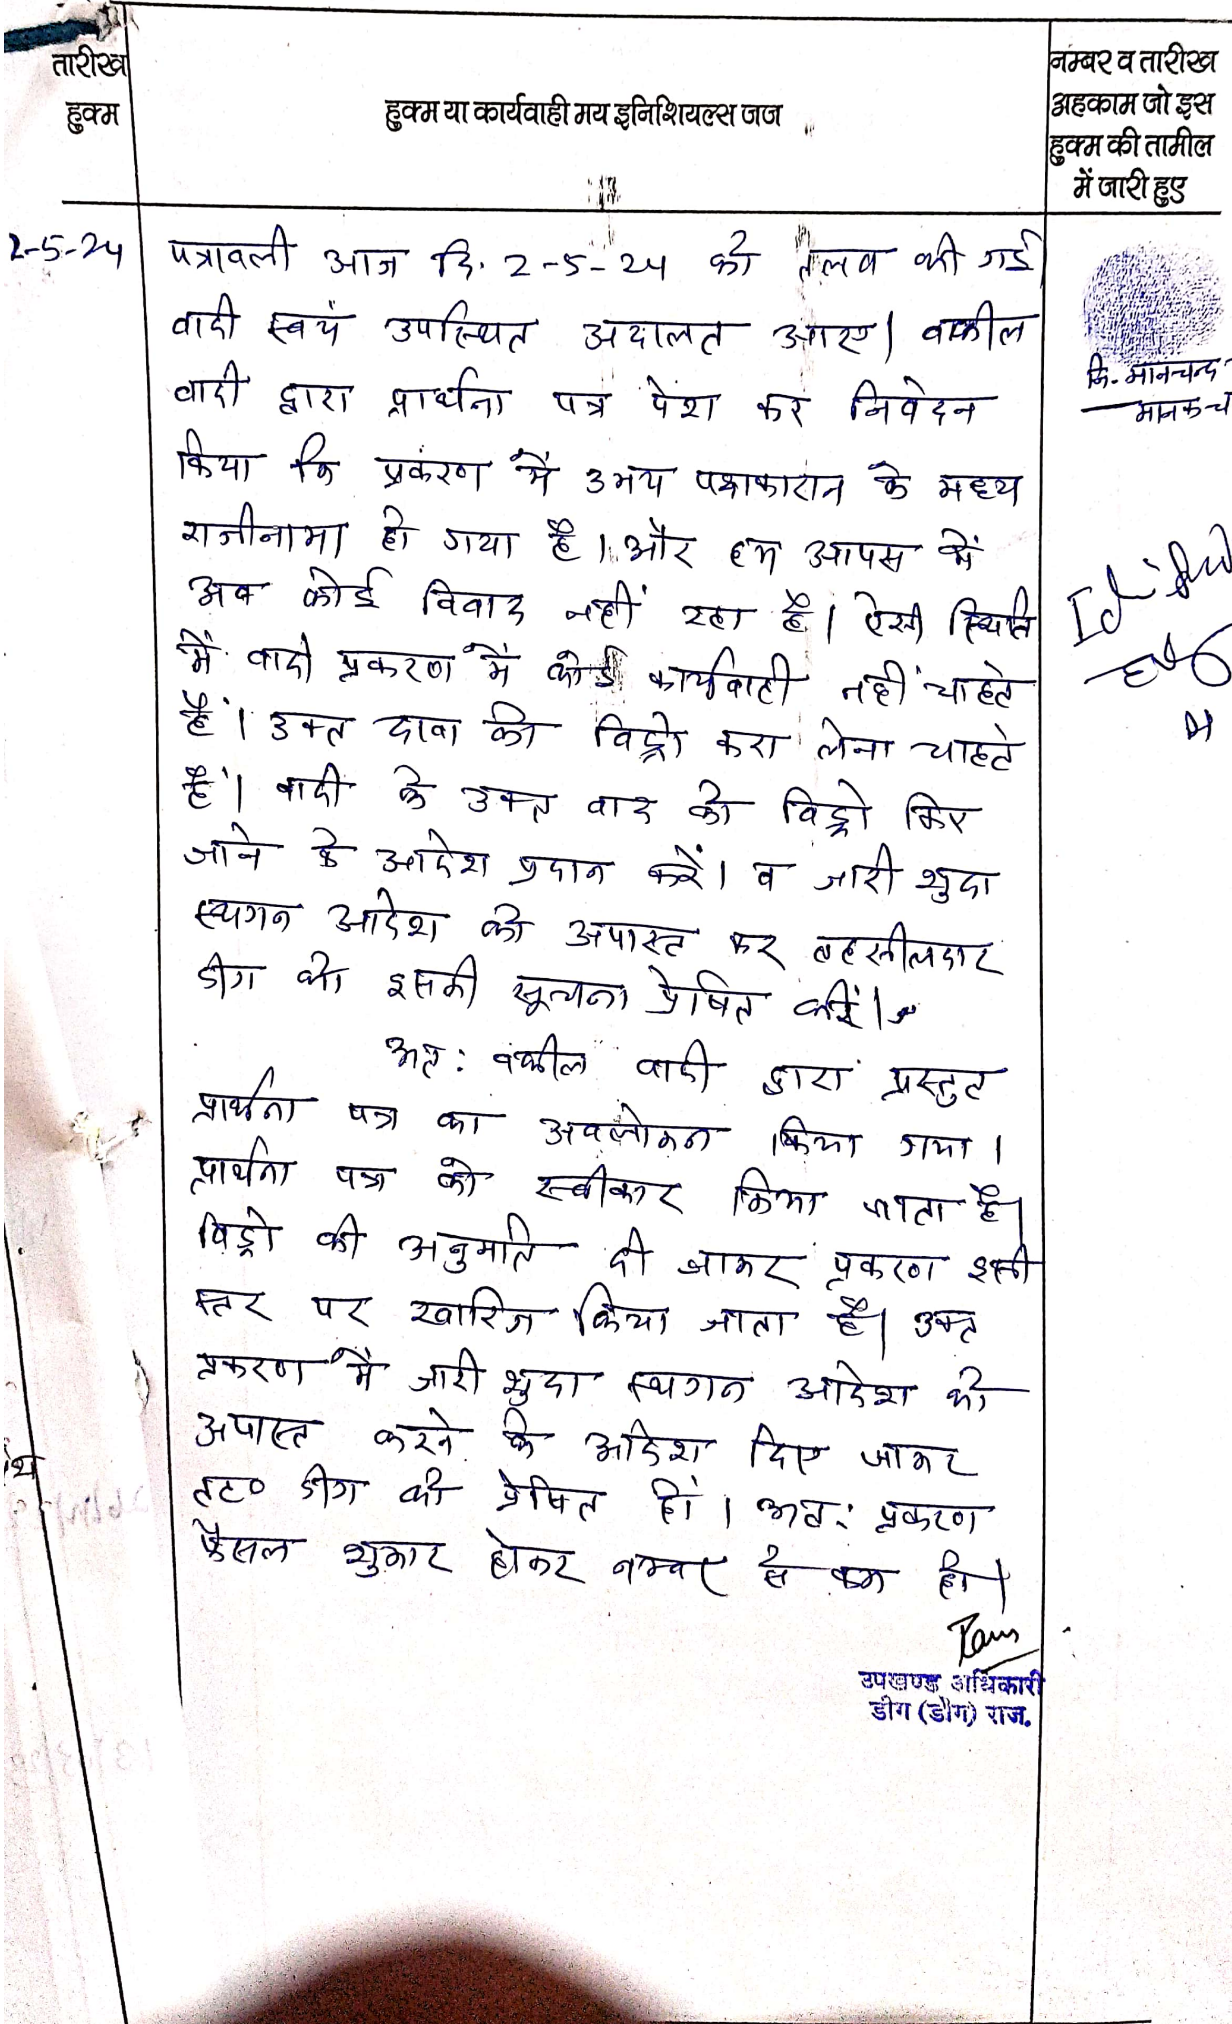 तारीख
हुक्म
हुक्म या कार्यवाही मय इनिशियल्स जज
नम्बर व तारीख
अहकाम जो इस
हुक्म की तामील
में जारी हुए
2-5-24
पत्रावली आज दि. 2-5-24 को तलब की गई
वादी स्वयं उपस्थित अदालत आए। वकील
वादी द्वारा प्रार्थना पत्र पेश कर निवेदन
किया कि प्रकरण में उभय पक्षकारान के मध्य
राजीनामा हो गया है। और हम आपस में
अब कोई विवाद नहीं रहा है। ऐसी स्थिति
में वादी प्रकरण में कोई कार्यवाही नहीं चाहते
हैं। उक्त दावा को विड्रो करा लेना चाहते
हैं। वादी के उक्त वाद को विड्रो किए
जाने के आदेश प्रदान करें। व जारी शुदा
स्थगन आदेश को अपास्त कर तहसीलदार
डीग को इसकी सूचना प्रेषित करें।
अतः वकील वादी द्वारा प्रस्तुत
प्रार्थना पत्र का अवलोकन किया गया।
प्रार्थना पत्र को स्वीकार किया जाता है।
विड्रो की अनुमति दी जाकर प्रकरण इसी
स्तर पर खारिज किया जाता है। उक्त
प्रकरण में जारी शुदा स्थगन आदेश को
अपास्त करने के आदेश दिए जाकर
तह० डीग को प्रेषित हो। अतः प्रकरण
फैसल शुमार होकर नम्बर से कम हो।
नि. मानचन्द
मानकच
उपखण्ड अधिकारी
डीग (डीग) राज.